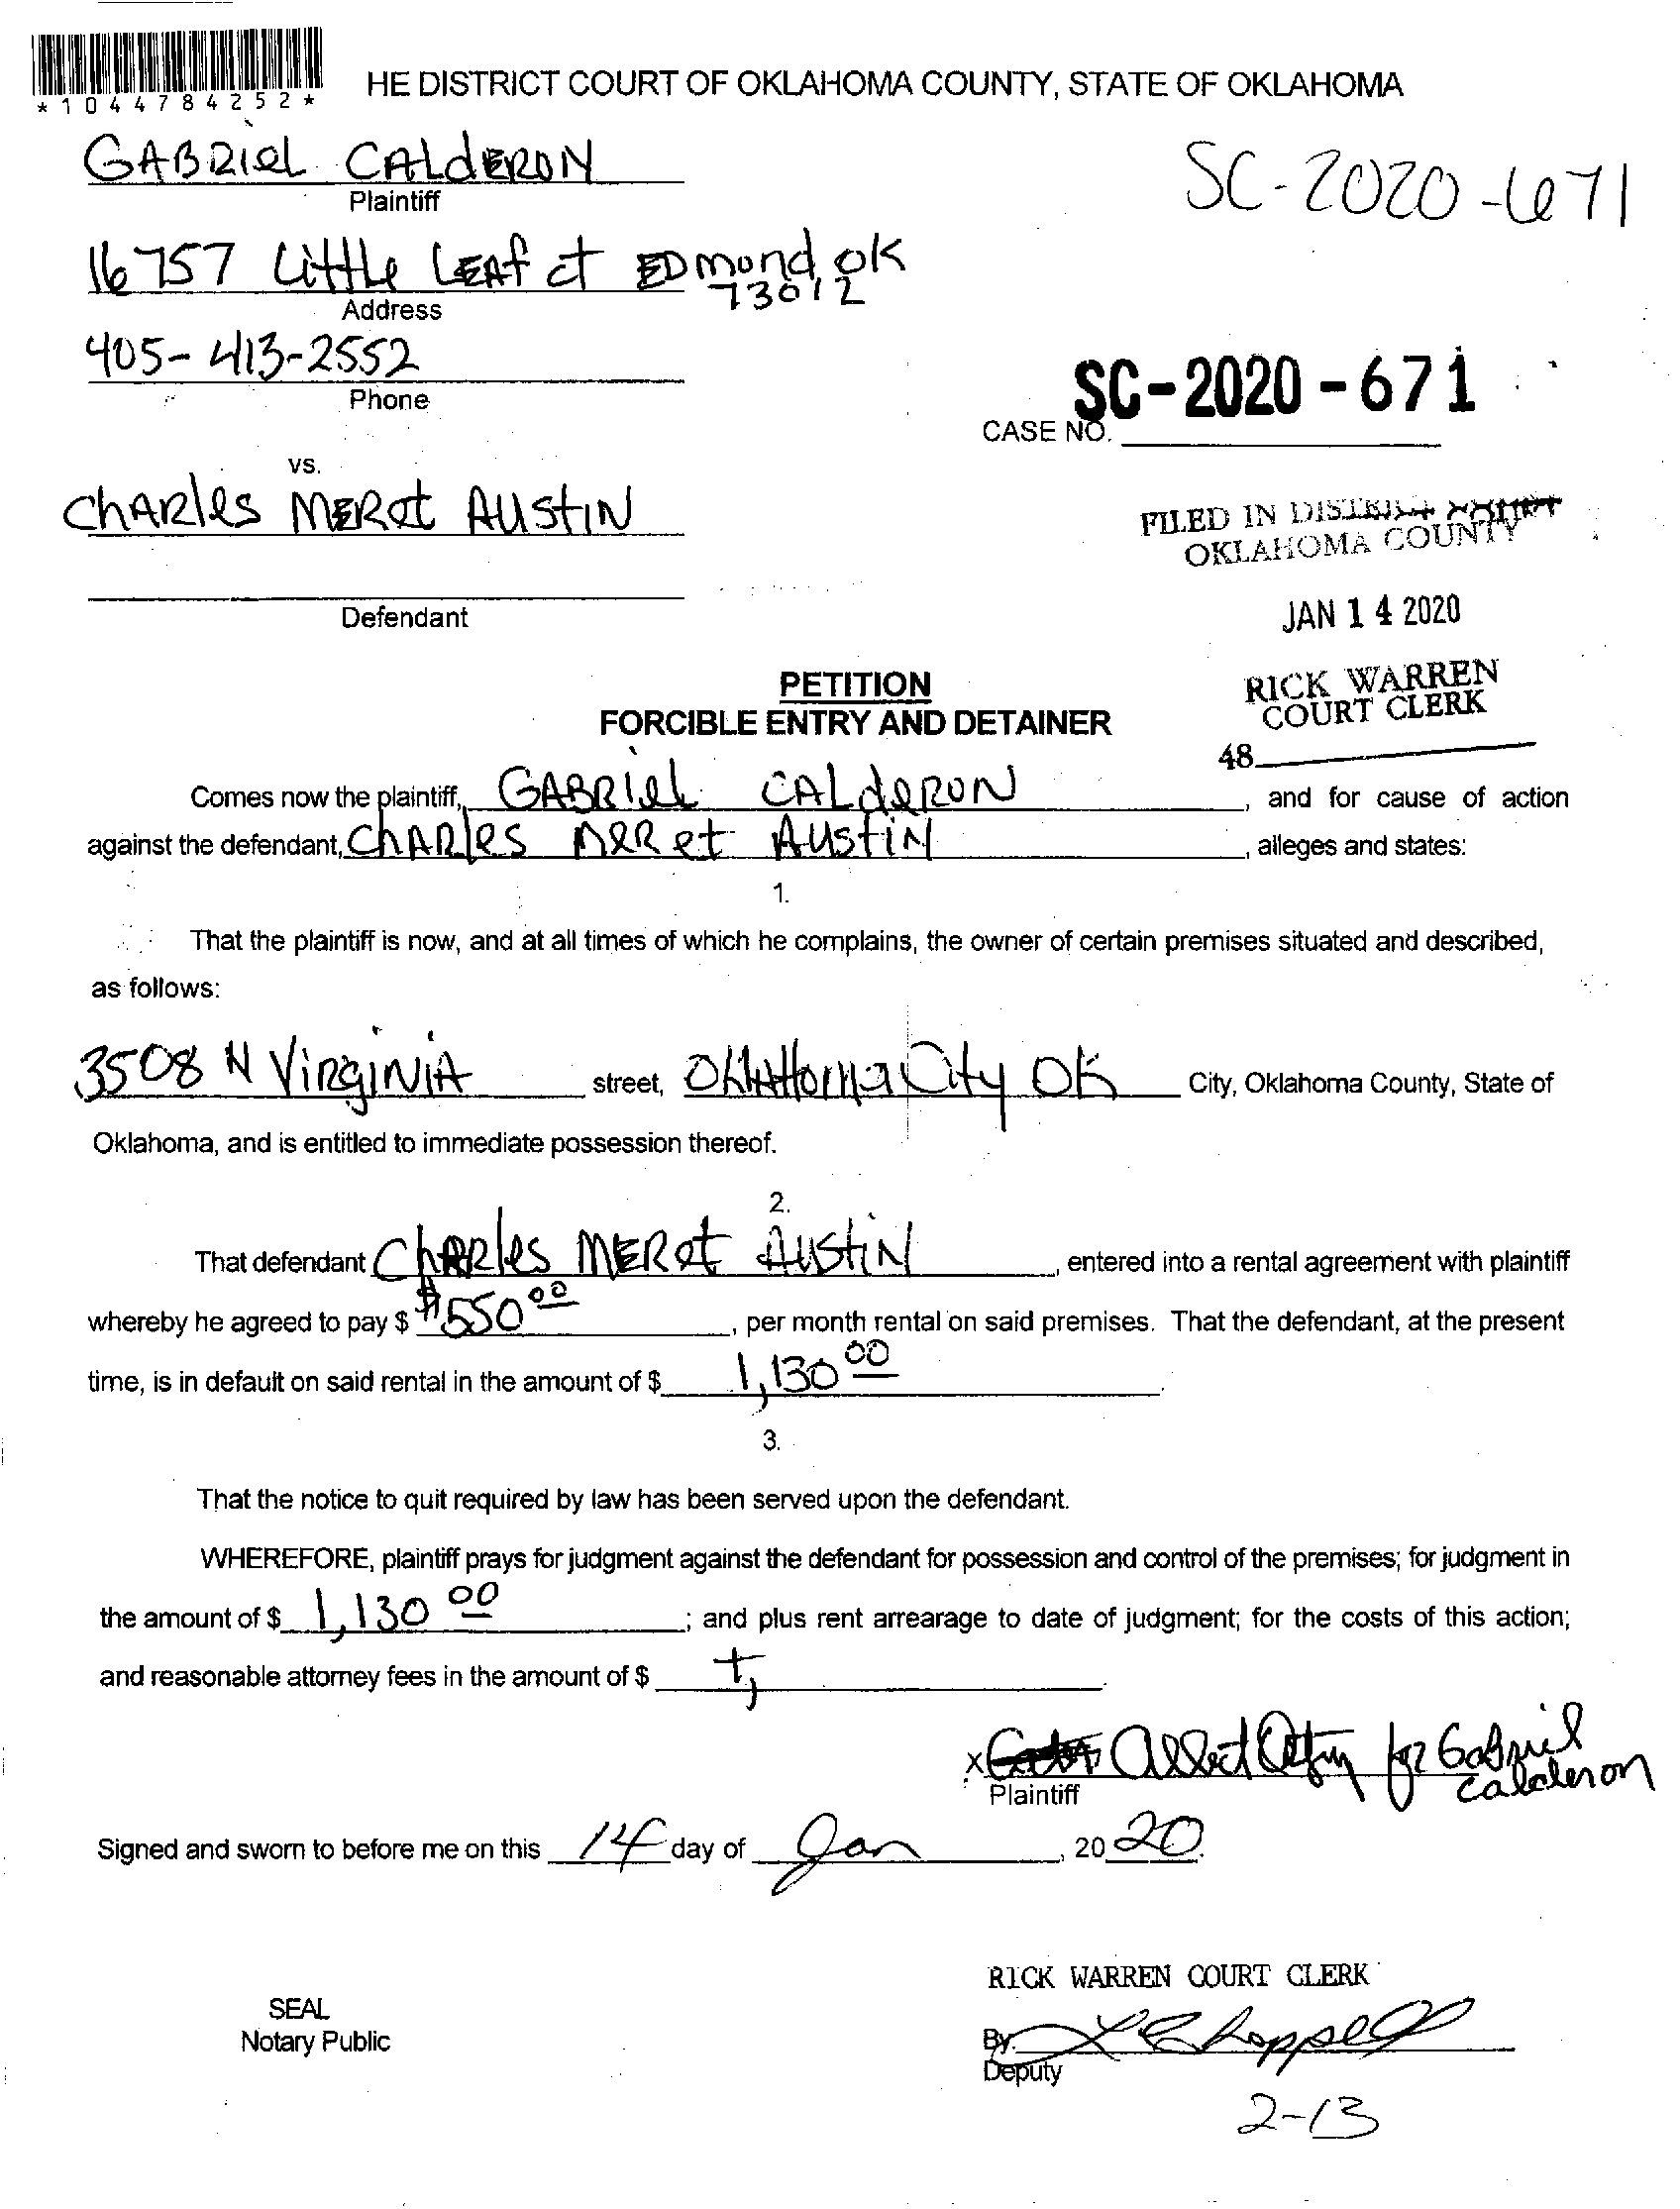 *1044784252*
HE DISTRICT COURT OF OKLAHOMA COUNTY, STATE OF OKLAHOMA
GABRIel CALdERON
Plaintiff
SC-2020-671
16757 Little LEAf ct EDmond, ok
73012
Address
405-413-2552
Phone
SC-2020-671
CASE NO.
vs.
ChARles MERet AUStIN
FILED IN DISTRICT COURT
OKLAHOMA COUNTY
Defendant
JAN 14 2020
PETITION
RICK WARREN
FORCIBLE ENTRY AND DETAINER
COURT CLERK
48
Comes now the plaintiff, GABRIel CALdeRON, and for cause of action
against the defendant, ChARles MeRet AUstiN, alleges and states:
1.
That the plaintiff is now, and at all times of which he complains, the owner of certain premises situated and described,
as follows:
3508 N VirginiA street, OklaHoma City OK City, Oklahoma County, State of
Oklahoma, and is entitled to immediate possession thereof.
2.
That defendant ChARles MERet AUStiN, entered into a rental agreement with plaintiff
whereby he agreed to pay $ $550 00, per month rental on said premises. That the defendant, at the present
time, is in default on said rental in the amount of $ 1,130 00.
3.
That the notice to quit required by law has been served upon the defendant.
WHEREFORE, plaintiff prays for judgment against the defendant for possession and control of the premises; for judgment in
the amount of $ 1,130 00; and plus rent arrearage to date of judgment; for the costs of this action;
and reasonable attorney fees in the amount of $ +,.
x for Gabriel
Calderon
Plaintiff
Signed and sworn to before me on this 14 day of Jan, 2020.
RICK WARREN COURT CLERK
SEAL
Notary Public
By.
Deputy
2-13